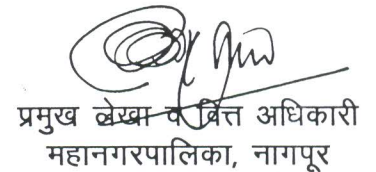 प्रमुख लेखा व वित्त अधिकारी
महानगरपालिका, नागपूर